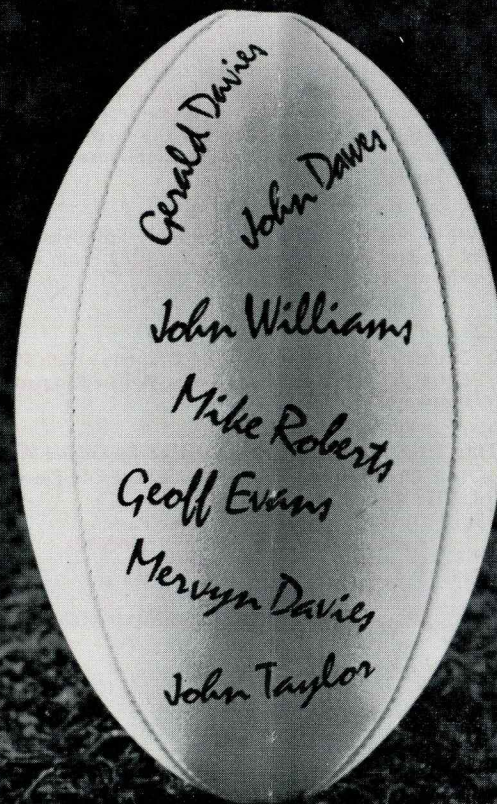 Gerald Davies
John Dawes
John Williams
Mike Roberts
Geoff Evans
Mervyn Davies
John Taylor